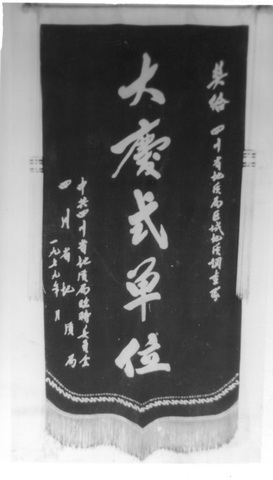 奖给 四川省地质局区域地质调查队
大庆式单位
中共四川省地质局临时委员会
四川省地质局
一九七九年 月